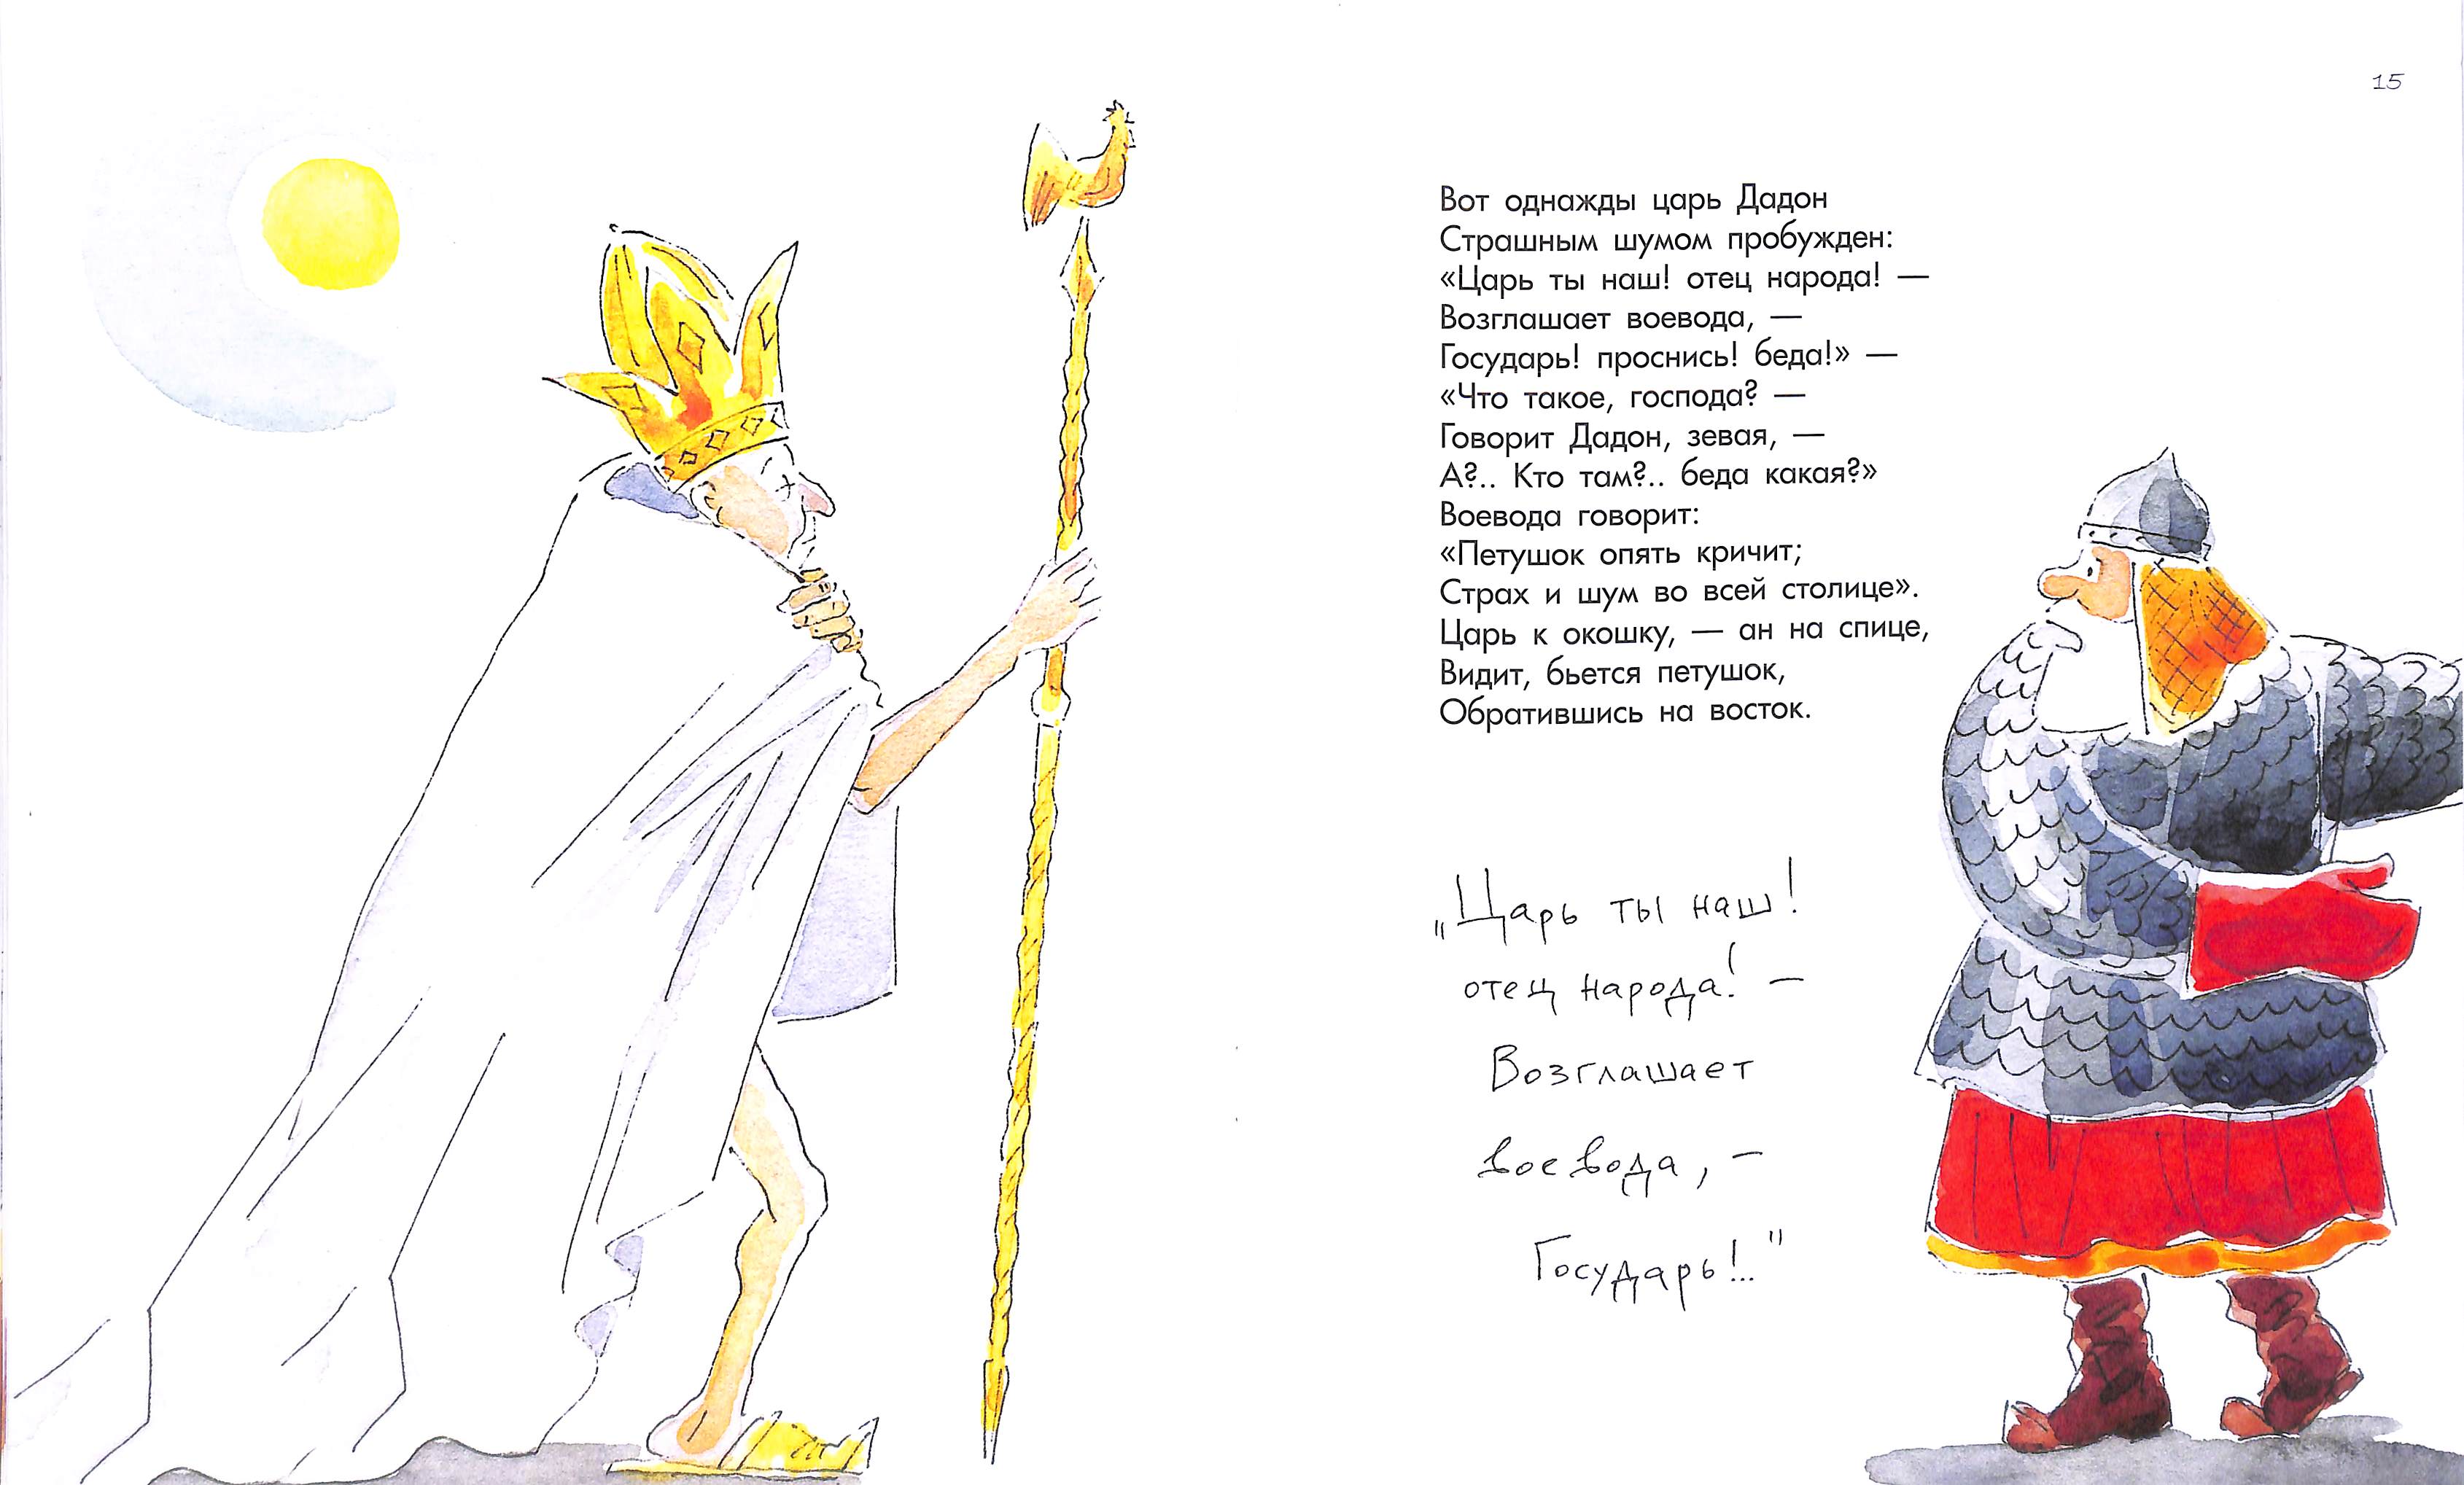 15
Вот однажды царь Дадон
Страшным шумом пробужден:
«Царь ты наш! отец народа! —
Возглашает воевода, —
Государь! проснись! беда!» —
«Что такое, господа? —
Говорит Дадон, зевая, —
А?.. Кто там?.. беда какая?»
Воевода говорит:
«Петушок опять кричит;
Страх и шум во всей столице».
Царь к окошку, — ан на спице,
Видит, бьется петушок,
Обратившись на восток.
„Царь ты наш!
отец народа! —
Возглашает
воевода, —
Государь!.."